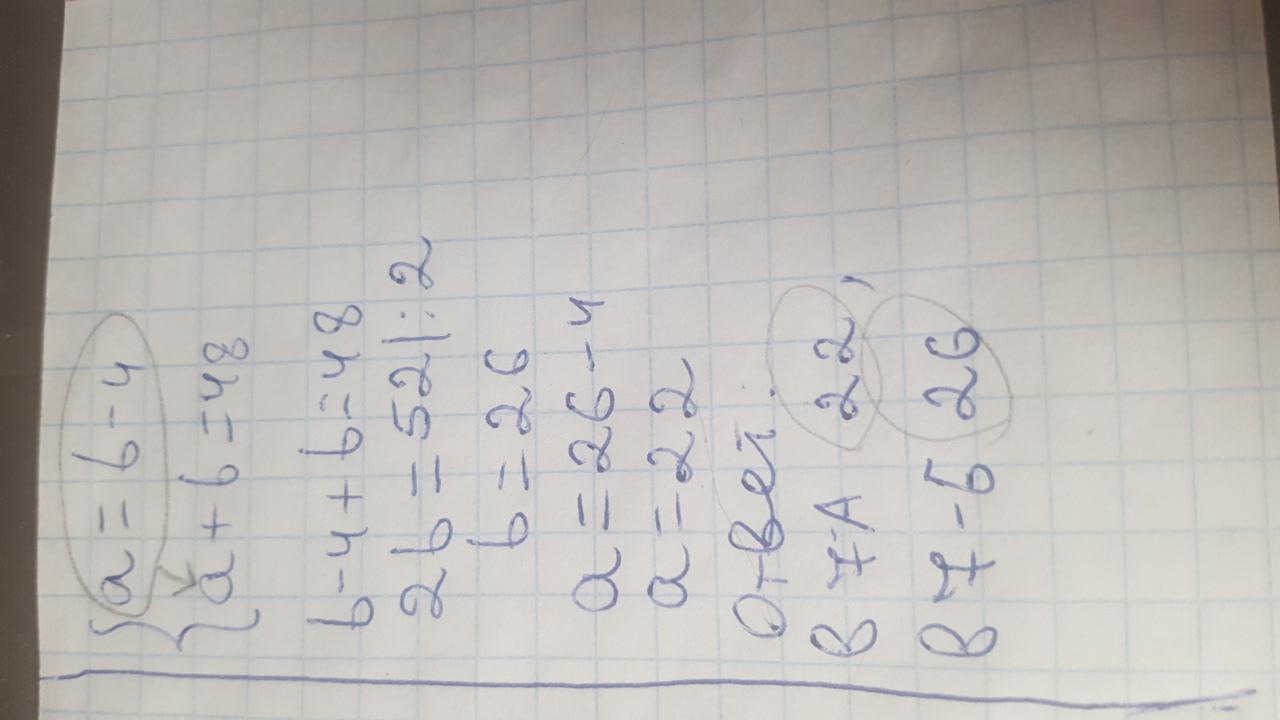 {a = b - 4
{a + b = 48
b - 4 + b = 48
2b = 52 | : 2
b = 26
a = 26 - 4
a = 22
Ответ:
В 7-А 22,
В 7-Б 26